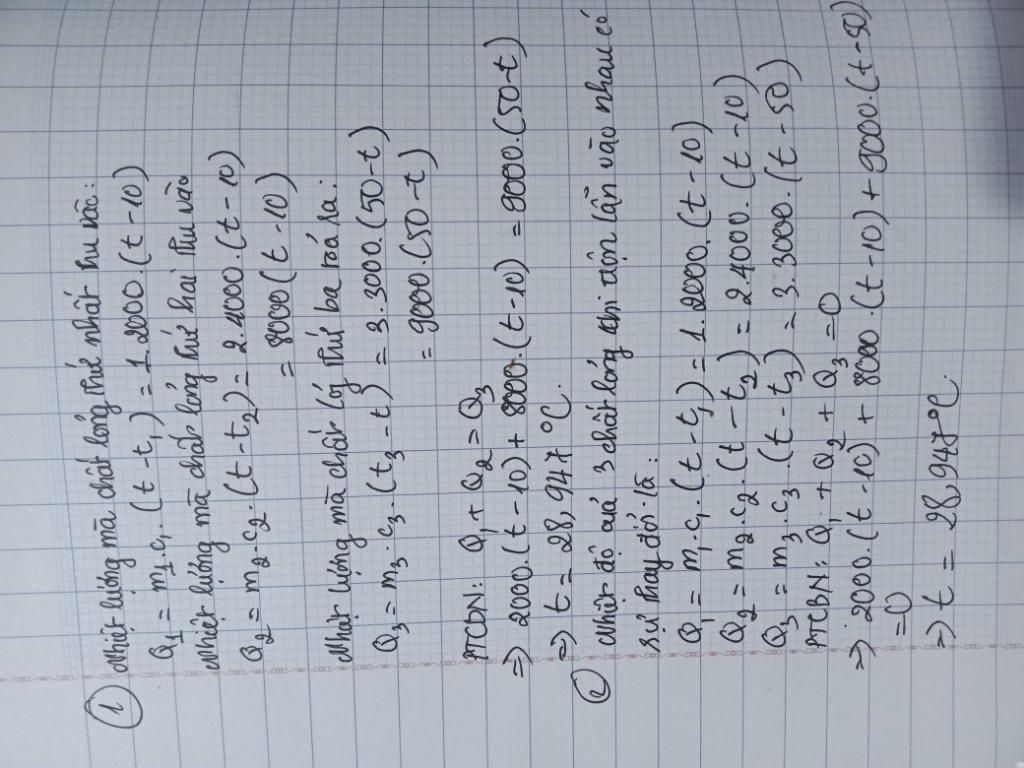 ① Nhiệt lượng mà chất lỏng thứ nhất thu vào:
Q₁ = m₁.c₁.(t - t₁) = 1.2000.(t - 10)
Nhiệt lượng mà chất lỏng thứ hai thu vào
Q₂ = m₂.c₂.(t - t₂) = 2.4000.(t - 10)
= 8000(t - 10)
Nhiệt lượng mà chất lỏg thứ ba toả ra:
Q₃ = m₃.c₃.(t₃ - t) = 3.3000.(50 - t)
= 9000.(50 - t)
PTCBN: Q₁ + Q₂ = Q₃
=> 2000.(t - 10) + 8000.(t - 10) = 9000.(50 - t)
=> t = 28,947 °C.
② Nhiệt độ của 3 chất lỏng khi trộn lẫn vào nhau có
sự thay đổi là:
Q₁ = m₁.c₁.(t - t₁) = 1.2000.(t - 10)
Q₂ = m₂.c₂.(t - t₂) = 2.4000.(t - 10)
Q₃ = m₃.c₃.(t - t₃) = 3.3000.(t - 50)
PTCBN: Q₁ + Q₂ + Q₃ = 0
=> 2000.(t - 10) + 8000.(t - 10) + 9000.(t - 50)
= 0
=> t = 28,947°C.